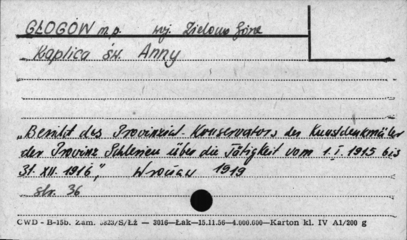 GŁOGÓW m.p. woj. Zielona Góra
Kaplica św. Anny
"Bericht des Provinzial-Konservators der Kunstdenkmäler
der Provinz Schlesien über die Tätigkeit vom 1.I.1915 bis
31.XII.1916", Wrocław 1919
str. 36
CWD - B-15b. Zam. 5823/S/Łż — 3016—Łak—15.11.56—4.000.000—Karton kl. IV A1/200 g